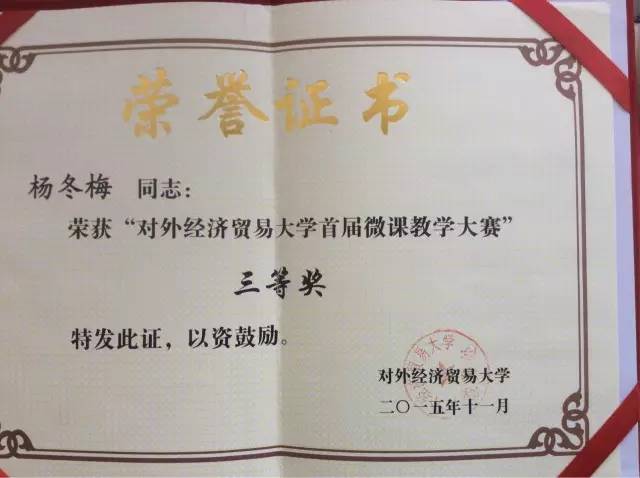 荣誉证书
杨冬梅 同志：
荣获“对外经济贸易大学首届微课教学大赛”
三等奖
特发此证，以资鼓励。
对外经济贸易大学
二〇一五年十一月